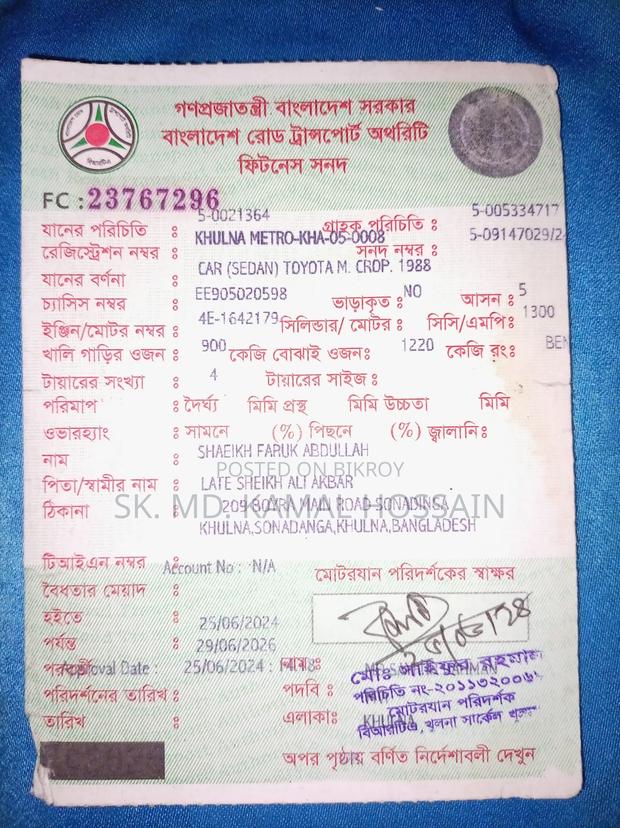 গণপ্রজাতন্ত্রী বাংলাদেশ সরকার
বাংলাদেশ রোড ট্রান্সপোর্ট অথরিটি
ফিটনেস সনদ
FC : 23767296
যানের পরিচিতি : 5-0021364 গ্রাহক পরিচিতি : 5-005334717
রেজিস্ট্রেশন নম্বর : KHULNA METRO-KHA-05-0008 সনদ নম্বর : 5-09147029/2
যানের বর্ণনা : CAR (SEDAN) TOYOTA M. CROP. 1988
চ্যাসিস নম্বর : EE905020598 ভাড়াকৃত : NO আসন : 5
ইঞ্জিন/মোটর নম্বর : 4E-1642179 সিলিন্ডার/ মোটর : সিসি/এমপি: 1300
খালি গাড়ির ওজন : 900 কেজি বোঝাই ওজন: 1220 কেজি রং: BE
টায়ারের সংখ্যা : 4 টায়ারের সাইজ :
পরিমাপ : দৈর্ঘ্য মিমি প্রস্থ মিমি উচ্চতা মিমি
ওভারহ্যাং : সামনে (%) পিছনে (%) জ্বালানি:
নাম : SHAEIKH FARUK ABDULLAH
POSTED ON BIKROY
পিতা/স্বামীর নাম : LATE SHEIKH ALI AKBAR
SK. MD. KAMAL HOSSAIN
ঠিকানা : 209 BOYRA MAIL ROAD SONADINGA
KHULNA,SONADANGA,KHULNA,BANGLADESH
টিআইএন নম্বর : Account No : N/A
মোটরযান পরিদর্শকের স্বাক্ষর
বৈধতার মেয়াদ :
হইতে : 25/06/2024
পর্যন্ত : 29/06/2026
Approval Date : 25/06/2024 : নাম :
মোঃ সাইফুর রহমান
পরিদর্শনের তারিখ : পদবি :
পরিচিতি নং-২০১১৩২০০৬
মোটরযান পরিদর্শক
তারিখ : এলাকা: KHULNA
বিআরটিএ, খুলনা সার্কেল
অপর পৃষ্ঠায় বর্ণিত নির্দেশাবলী দেখুন